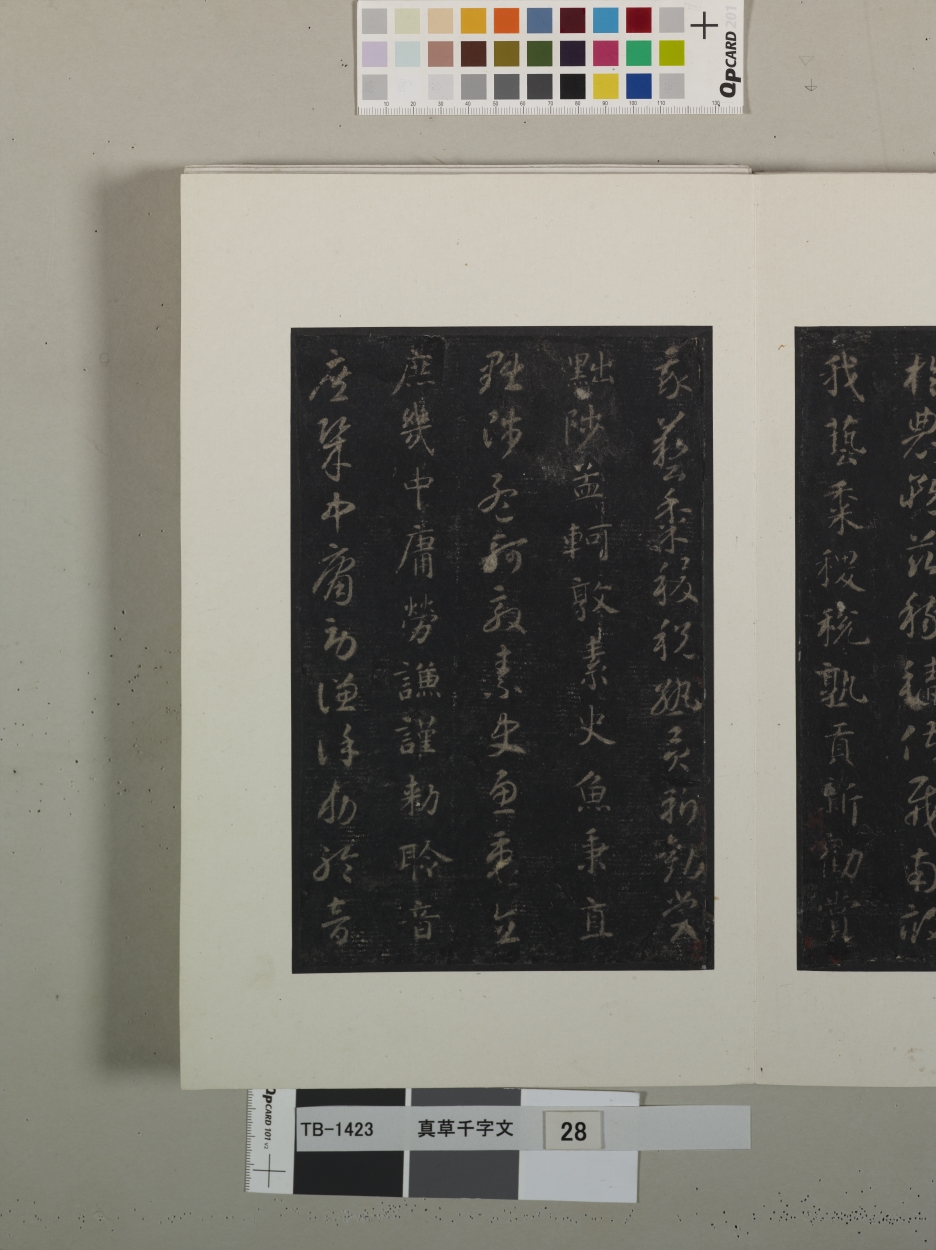 QPCARD 201
於農務茲稼穡俶載南畝
我藝黍稷稅熟貢新勸賞
我藝黍稷稅熟貢新勸賞
黜陟孟軻敦素史魚秉直
黜陟孟軻敦素史魚秉直
庶幾中庸勞謙謹勅聆音
庶幾中庸勞謙謹勅聆音
QPCARD 101 v2
TB-1423 真草千字文 28